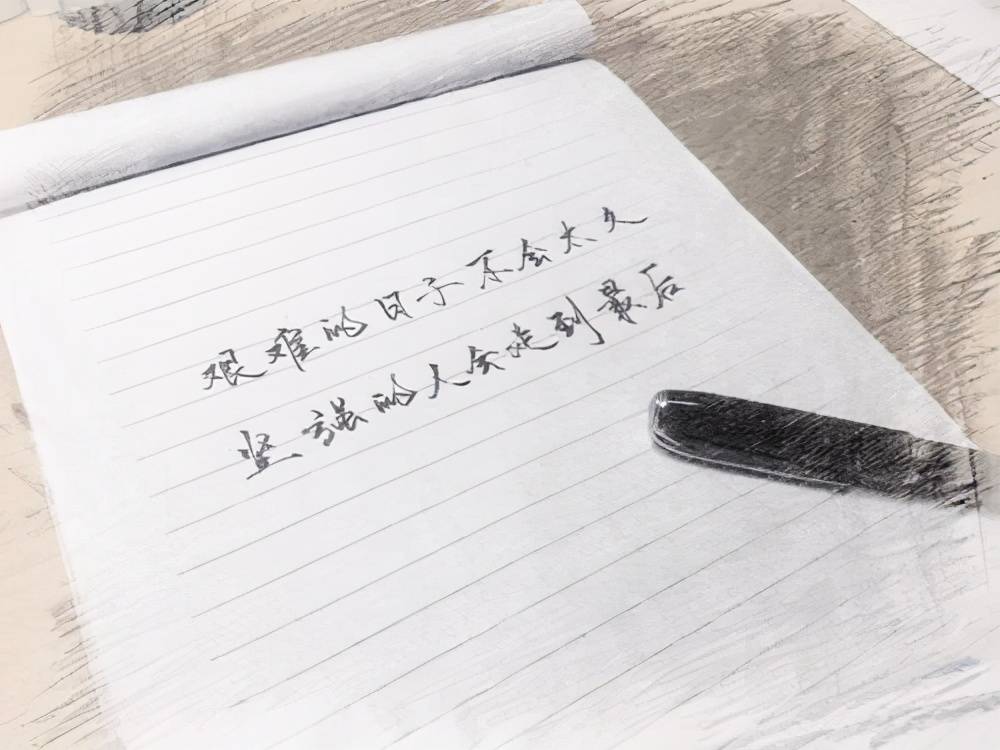 艰难的日子不会太久
坚强的人会走到最后